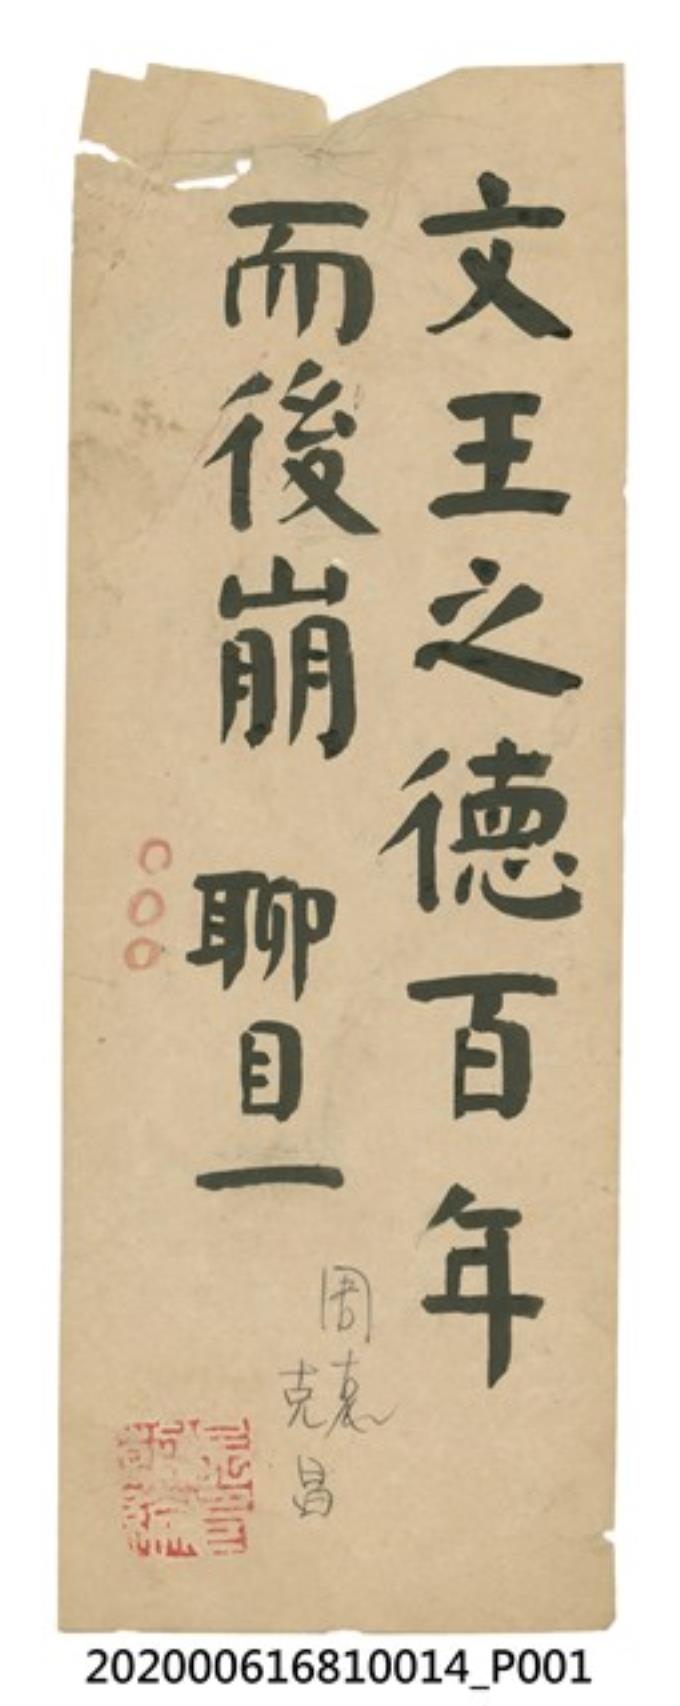 文王之徳百年
而後崩 聊目一
周
克
昌
202000616810014_P001